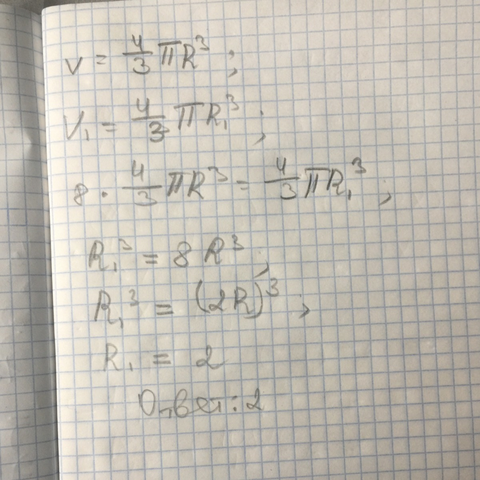 V = 4/3 πR³;
V₁ = 4/3 πR₁³;
8 · 4/3 πR³ = 4/3 πR₁³;
R₁³ = 8R³;
R₁³ = (2R)³,
R₁ = 2
Ответ: 2